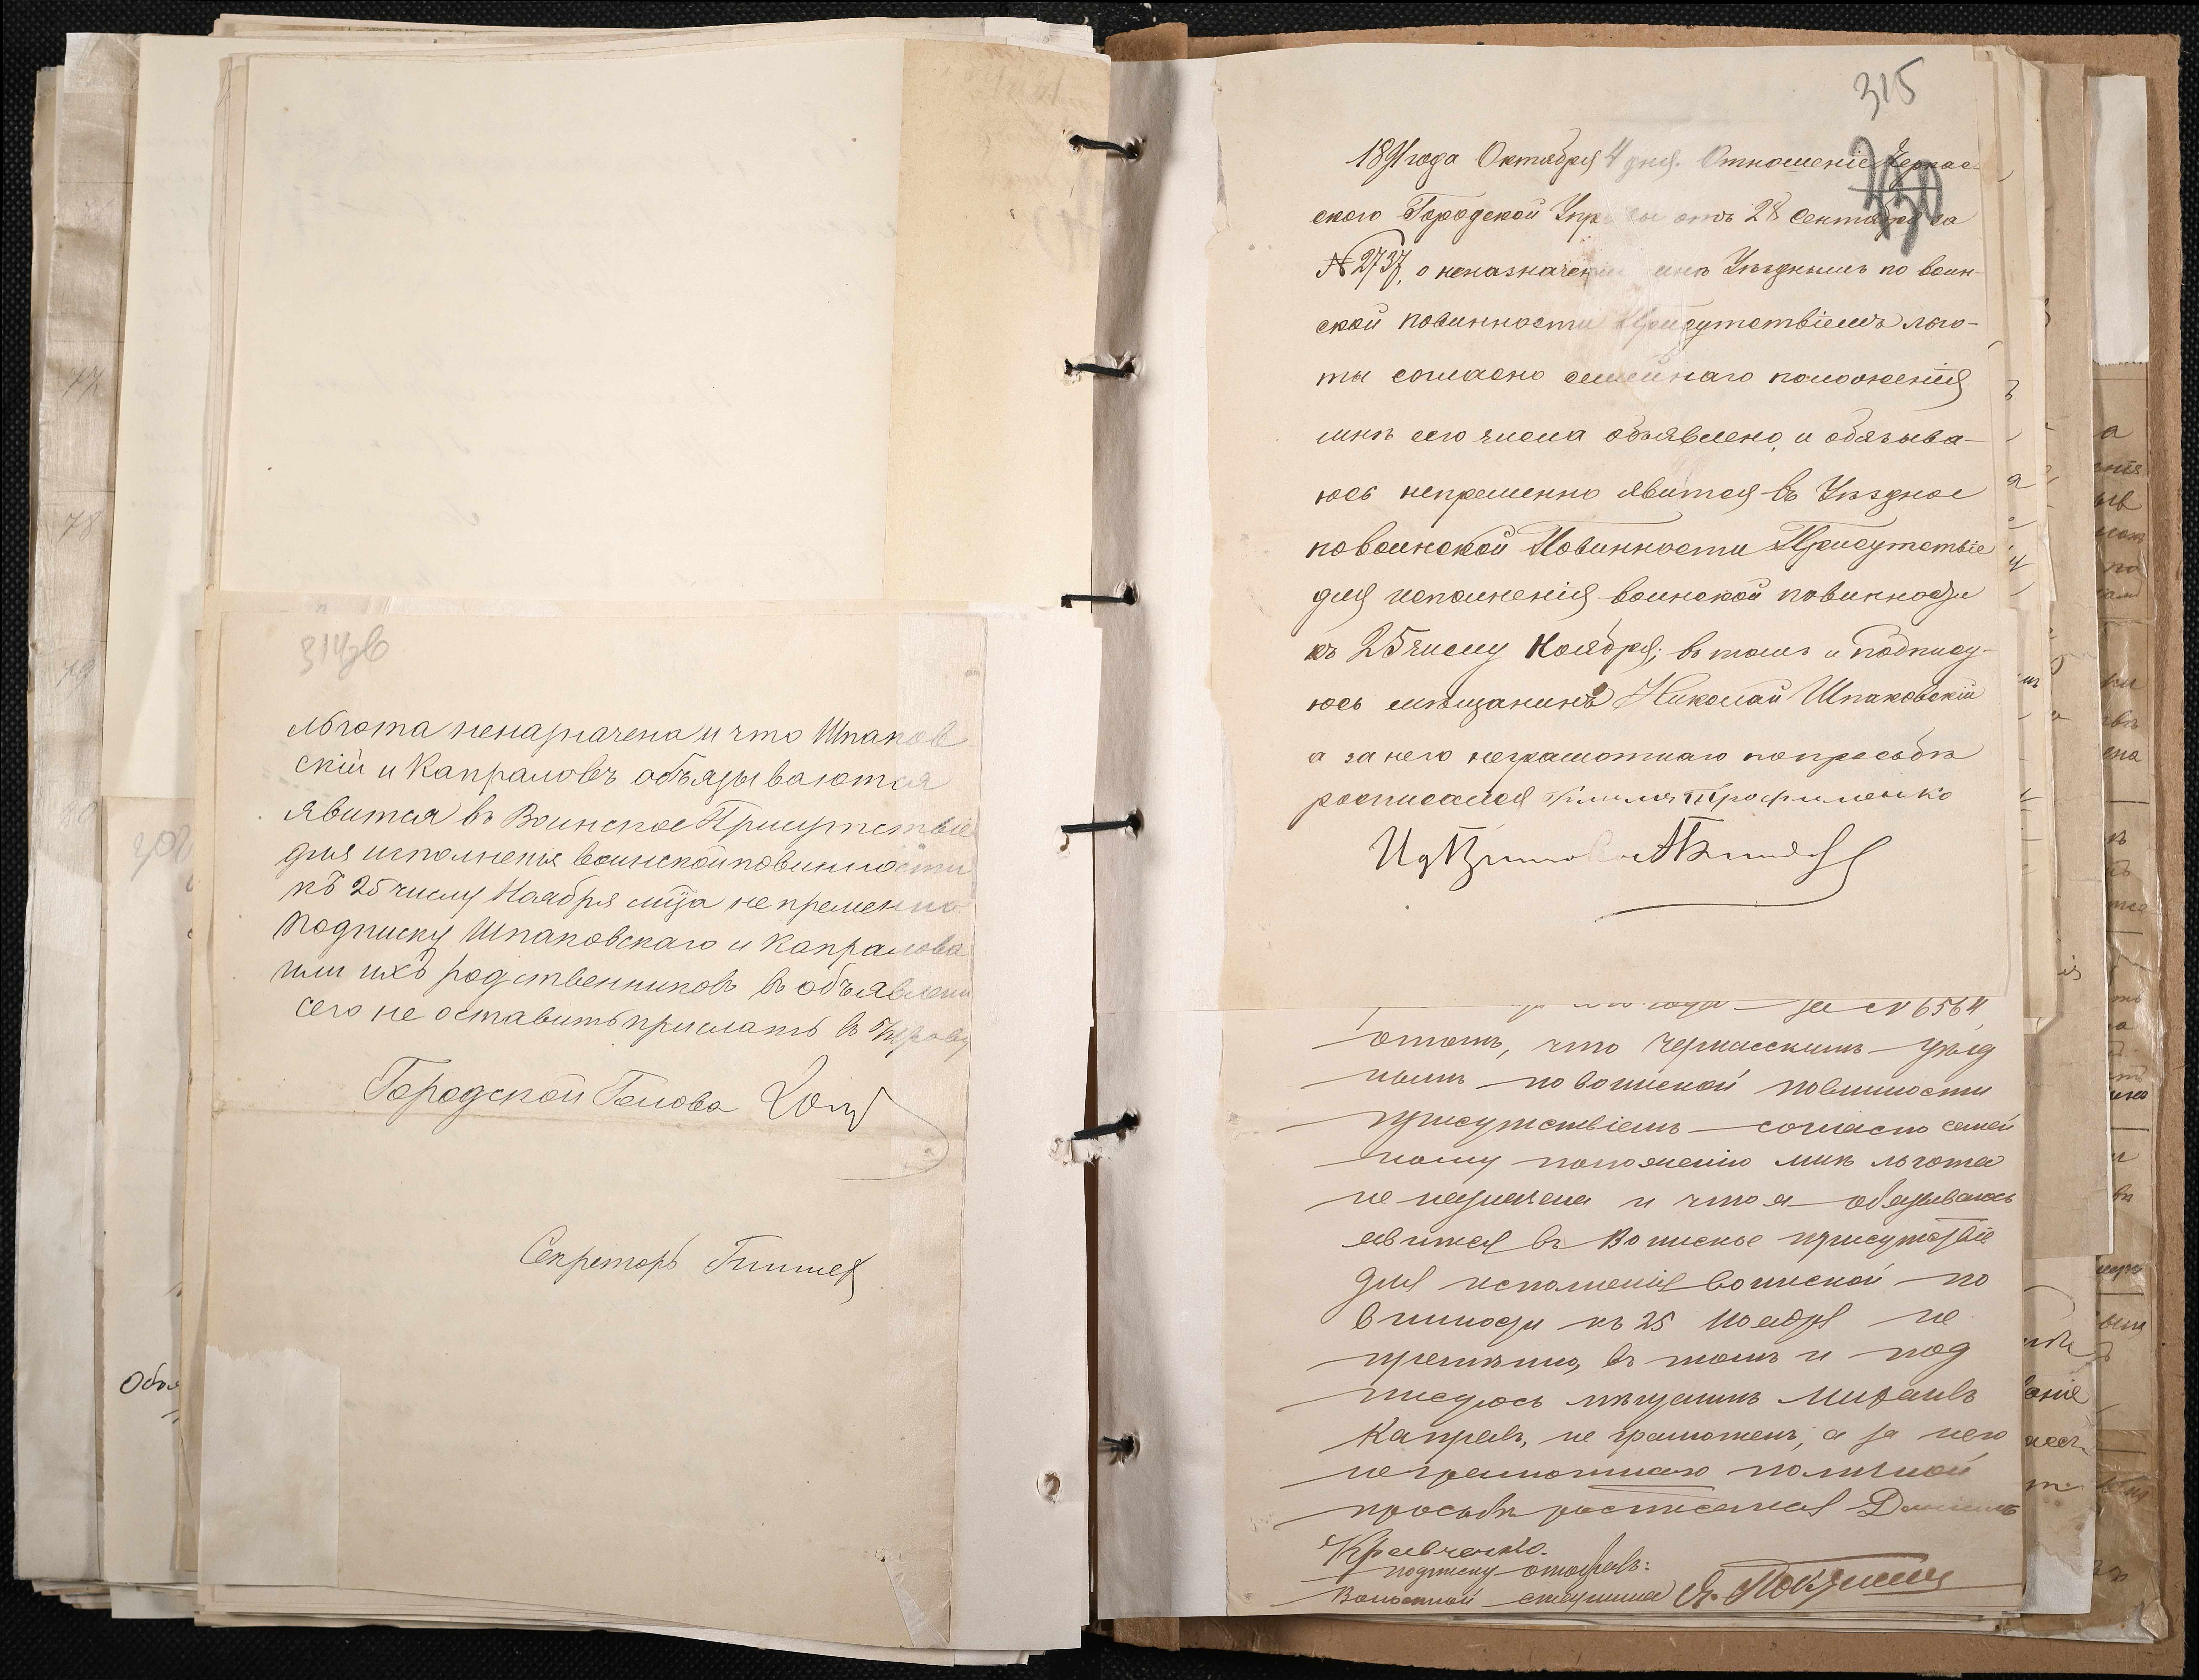 314зв
льгота неназначена и что Шпаков
скій и Капраловъ обязываются
явится въ Воинское Присутствіе
для исполненія воинской повинности
къ 25 числу Ноября мца не пременно.
Подписку Шпаковскаго и Капралова
или ихъ родственниковъ въ объявлени
сего не оставить прислать въ Управу
Городской Голова
Секреторь
315
1891 года Октября 4 дня. Отношеніе Черкас
ского Городской Управы отъ 28 Сентября за
№ 2737, о неназначеніи мнѣ Уѣзднымъ по воин-
ской повинности Присутствіемъ льго-
ты согласно семейнаго положенія
мнѣ сего числа объявлено, и обязыва-
юсь непременно явится въ Уѣздное
по воинской Повинности Присутствіе
для исполненія воинской повинности
къ 25 числу Ноября; въ томъ и подпису-
юсь мѣщанинъ Николай Шпаковскій
а за него неграмотнаго по просьбѣ
росписался Трофименко
года за № 6564
отомъ, что Черкасскимъ уѣзд
нымъ по воинской повинности
присутствіемъ согласно семей
ному положенію мнѣ льгота
не назначена и что я обязываюсь
явится въ Воинское присутствіе
для исполненія воинской по
винности къ 25 Ноября не
премѣнно, въ томъ и под
писуюсь мѣщанинъ
Капраль, не грамотенъ, а за него
неграмотнаго по личной
просьбѣ росписался Даніилъ
Кравченко.
подписку отобралъ:
Волостной старшина
77
78
79
80